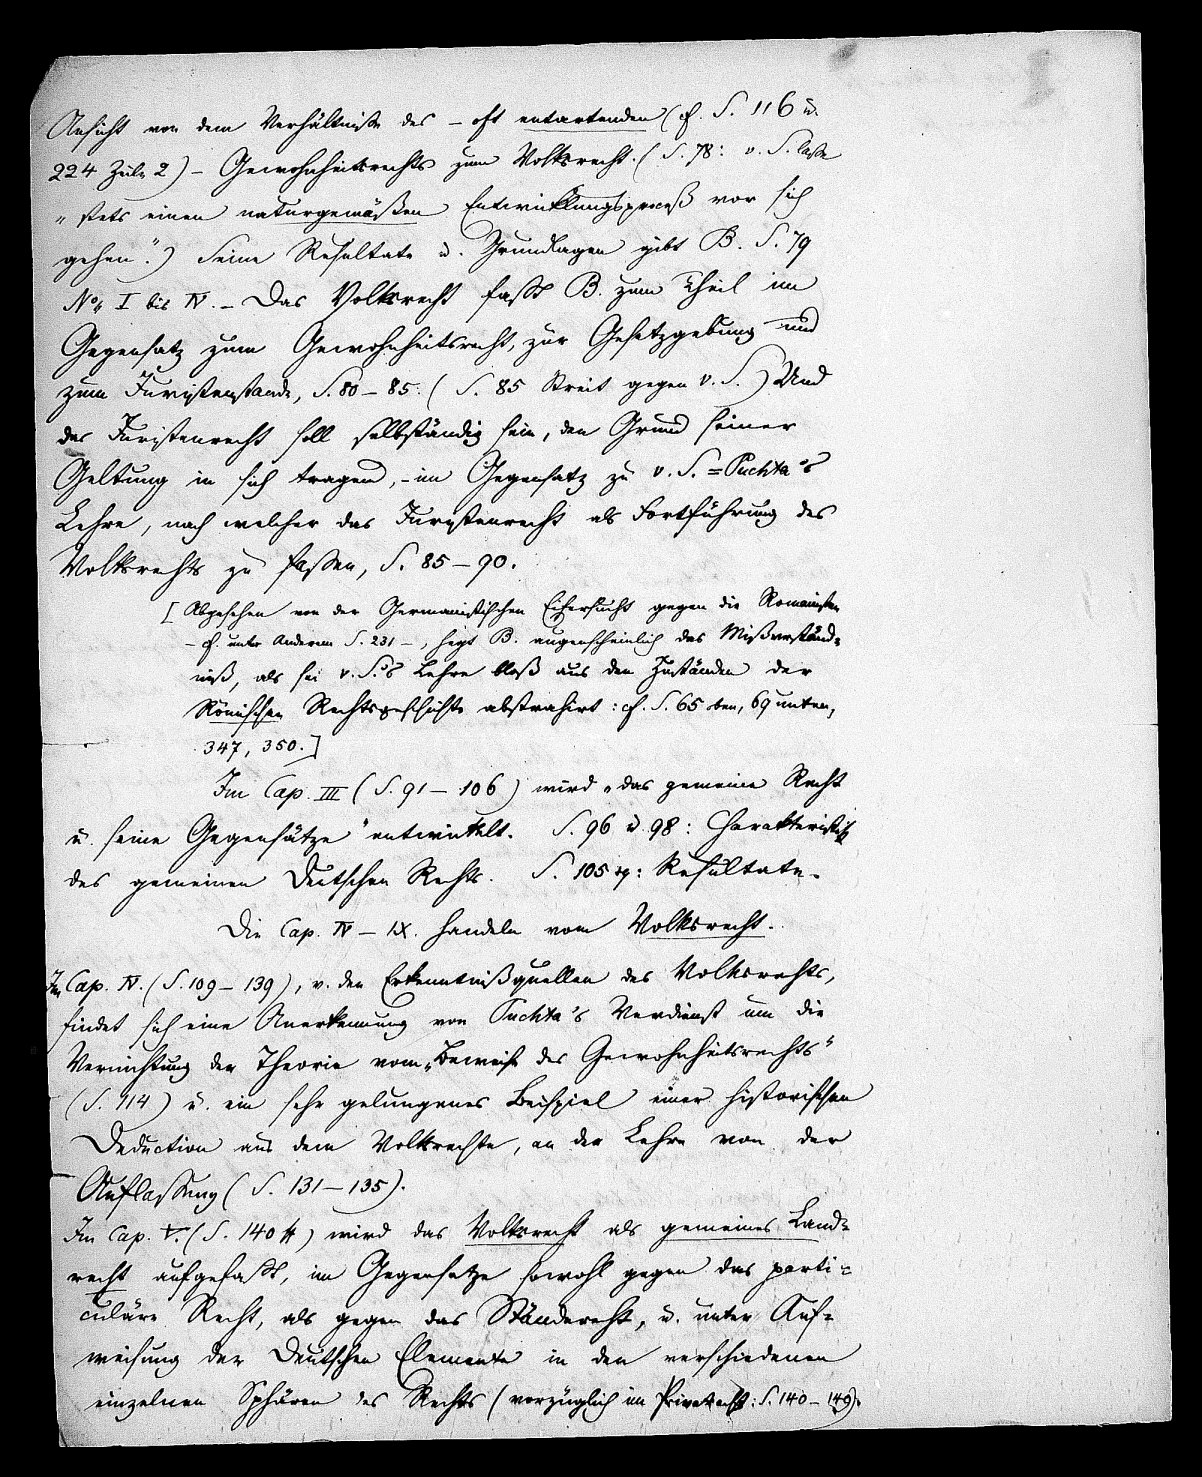 Ansicht von dem Verhältniße des – oft entartenden (cf. S. 116 u.
224 Zeile 2) – Gewohnheitsrechts zum Volksrecht. (S. 78: v. S. laße
„stets einen naturgemäßen Entwicklungsproceß vor sich
gehen“.) Seine Resultate u. Grundlagen gibt B. S. 79
No. I bis IV. – Das Volksrecht faßt B. zum Theil im
Gegensatz zum Gewohnheitsrecht, zur Gesetzgebung und
zum Juristenstande, S. 80–85. (S. 85 Streit gegen v. S.) Und
das Juristenrecht soll selbständig sein, den Grund seiner
Geltung in sich tragen, – im Gegensatz zu v. S. = Puchta's
Lehre, nach welcher das Juristenrecht als Fortführung des
Volksrechts zu faßen, S. 85–90.
[Abgesehen von der Germanistischen Eifersucht gegen die Romanisten
– cf. unter Anderem S. 231 –, hegt B. augenscheinlich das Mißverständ-
niß, als sei v. S.'s Lehre bloß aus den Zuständen der
Römischen Rechtsgeschichte abstrahirt: cf. S. 65 oben, 69 unten,
347, 350.]
Im Cap. III (S. 91–106) wird „das gemeine Recht
u. seine Gegensätze“ entwickelt. S. 96 u. 98: Charakteristik
des gemeinen Deutschen Rechts. S. 105 sq: Resultate.
Die Cap. IV – IX. handeln vom Volksrecht.
Im Cap. IV. (S. 109–139), v. den Erkenntnißquellen des Volksrechts,
findet sich eine Anerkennung von Puchta's Verdienst um die
Vernichtung der Theorie vom „Beweise des Gewohnheitsrechts“
(S. 114) u. ein sehr gelungenes Beispiel einer historischen
Deduction aus dem Volksrechte, an der Lehre von der
Auflaßung (S. 131–135).
Im Cap. V. (S. 140 ff) wird das Volksrecht als gemeines Land-
recht aufgefaßt, im Gegensatze sowohl gegen das parti-
culäre Recht, als gegen das Ständerecht, u. unter Auf-
weisung der Deutschen Elemente in den verschiedenen
einzelnen Sphären des Rechts (vorzüglich im Privatrecht: S. 140–149).